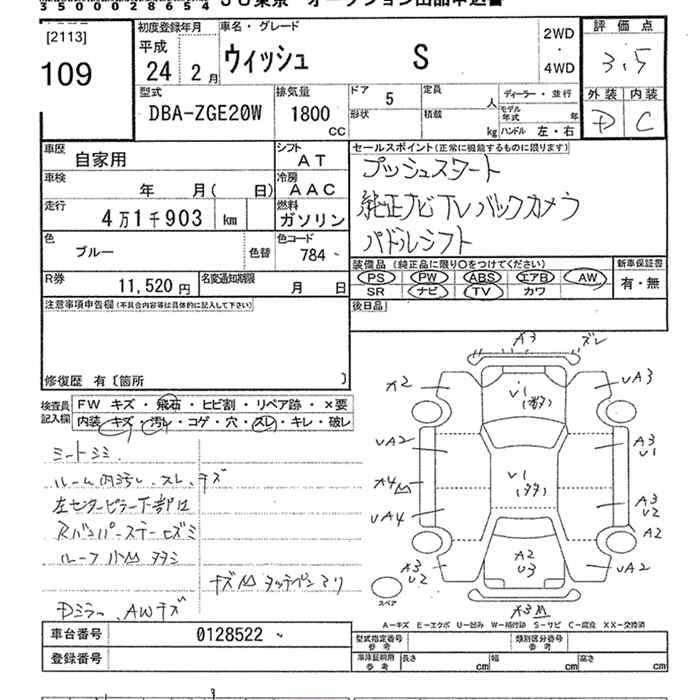 35000028654 JU東京 オークション出品申込書
[2113]
109
初度登録年月
平成
24 2月
車名・グレード
ウィッシュ S
2WD
・
4WD
評価点
3.5
外装 内装
D C
型式
DBA-ZGE20W
排気量
1800
CC
ドア 5
形状
定員 人
積載 kg
ディーラー・並行
モデル年式 年
ハンドル 左・右
車歴
自家用
シフト
AT
車検
年 月( 日)
冷房
AAC
走行
4万1千903 km
燃料
ガソリン
色
ブルー
色替
色コード
784
R券
11,520円
名変通知期限
月 日
セールスポイント(正常に機能するものに限ります)
プッシュスタート
純正ナビTVバックカメラ
パドルシフト
装備品(純正品に限り○をつけてください)
PS PW ABS エアB AW
SR ナビ TV カワ
新車保証書
有・無
後日品
注意事項申告欄(不具合内容等は具体的に記入して下さい)
修復歴 有〔箇所 〕
検査員記入欄
FW キズ・飛石・ヒビ割・リペア跡・×要
内装 キズ・汚レ・コゲ・穴・スレ・キレ・破レ
シートシミ.
ルーム内汚レ.スレ.キズ
左センターピラー下部
ルーフ
キズ タッチペンアリ
Dミラー.AWキズ
A3 ズレ
A2
UA3
U1
UA2
A3
U1
A4
U1
UA4
A3
U2
A2
A2
U3
A3
U2
UA2
スペア
A3
A-キズ E-エクボ U-凹み W-補修跡 S-サビ C-腐食 XX-交換済
車台番号 0128522
登録番号
型式指定番号 参考
類別区分番号 参考
車庫証明用 参考
長さ cm
幅 cm
高さ cm